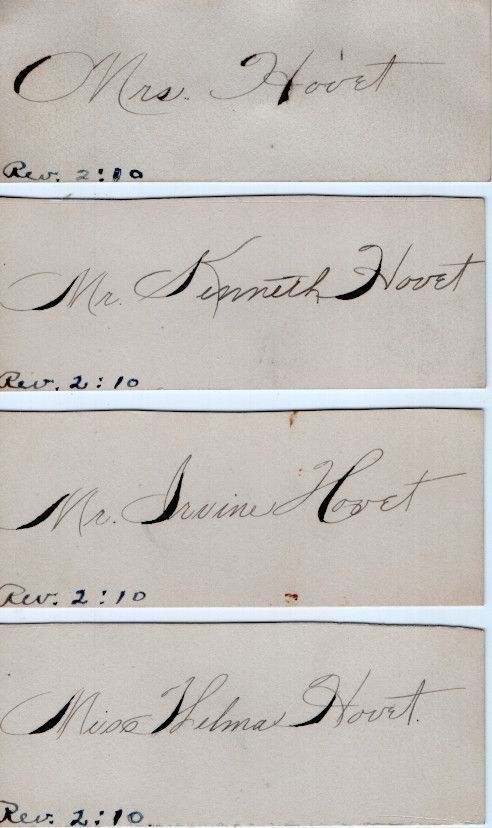 Mrs. Hovet
Rev. 2:10
Mr. Kenneth Hovet
Rev. 2:10
Mr. Irvine Hovet
Rev. 2:10
Miss Thelma Hovet.
Rev. 2:10